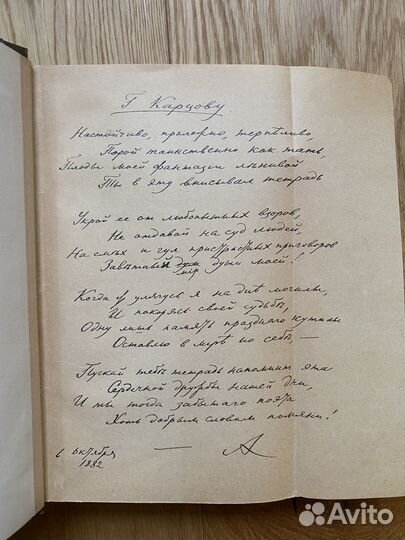 Г. Карцову.
Настойчиво, прилежно, терпѣливо,
Порой таинственно какъ тать,
Плоды моей фантазіи лѣнивой
Ты в эту вписывал тетрадь
Укрой ее от любопытных взоров,
Не отдавай на суд людей,
На смѣх и гул пристрастных приговоров
Завѣтный мір души моей!
Когда ж улягусь я на днѣ могилы,
И покорясь своей судьбѣ,
Одну лишь память праздного кутилы
Оставлю в мірѣ по себѣ, —
Пускай тебѣ тетрадь напомнит эта
Сердечной дружбы нашей дни,
И ты тогда забытого поэта
Хоть добрым словом помяни!
— А
6 октября
1882
Avito